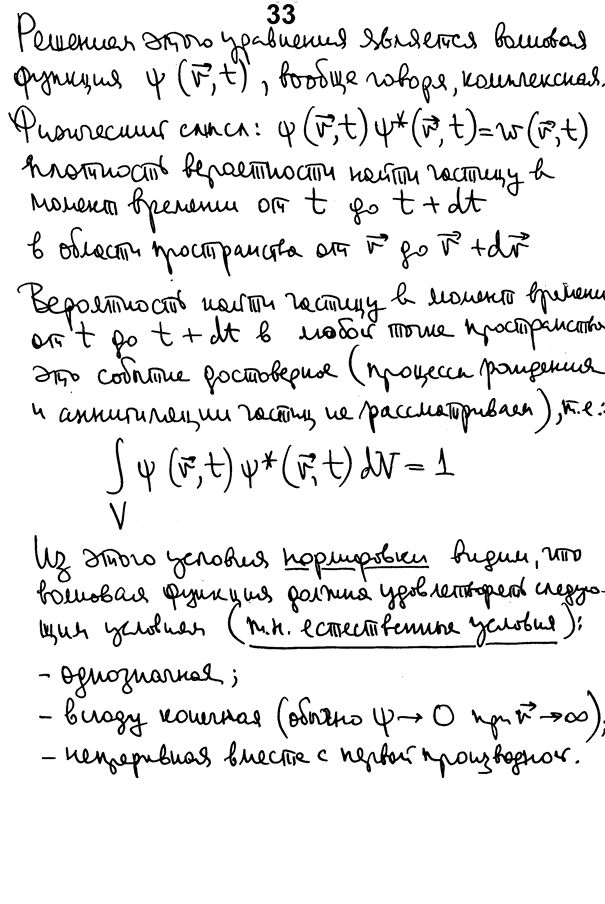 33
Решением этого уравнения является волновая
функция ψ (r⃗, t), вообще говоря, комплексная.
Физический смысл: ψ (r⃗, t) ψ* (r⃗, t) = w (r⃗, t)
плотность вероятности найти частицу в
момент времени от t до t + dt
в области пространства от r⃗ до r⃗ + dr⃗
Вероятность найти частицу в момент времени
от t до t + dt в любой точке пространства
это событие достоверное (процессы рождения
и аннигиляции частиц не рассматриваем), т.е.:
∫_V ψ (r⃗, t) ψ* (r⃗, t) dV = 1
Из этого условия нормировки видим, что
волновая функция должна удовлетворять следую-
щим условиям (т.н. естественные условия):
- однозначная;
- всюду конечная (обычно ψ → 0 при r⃗ → ∞);
- непрерывная вместе с первой производной.